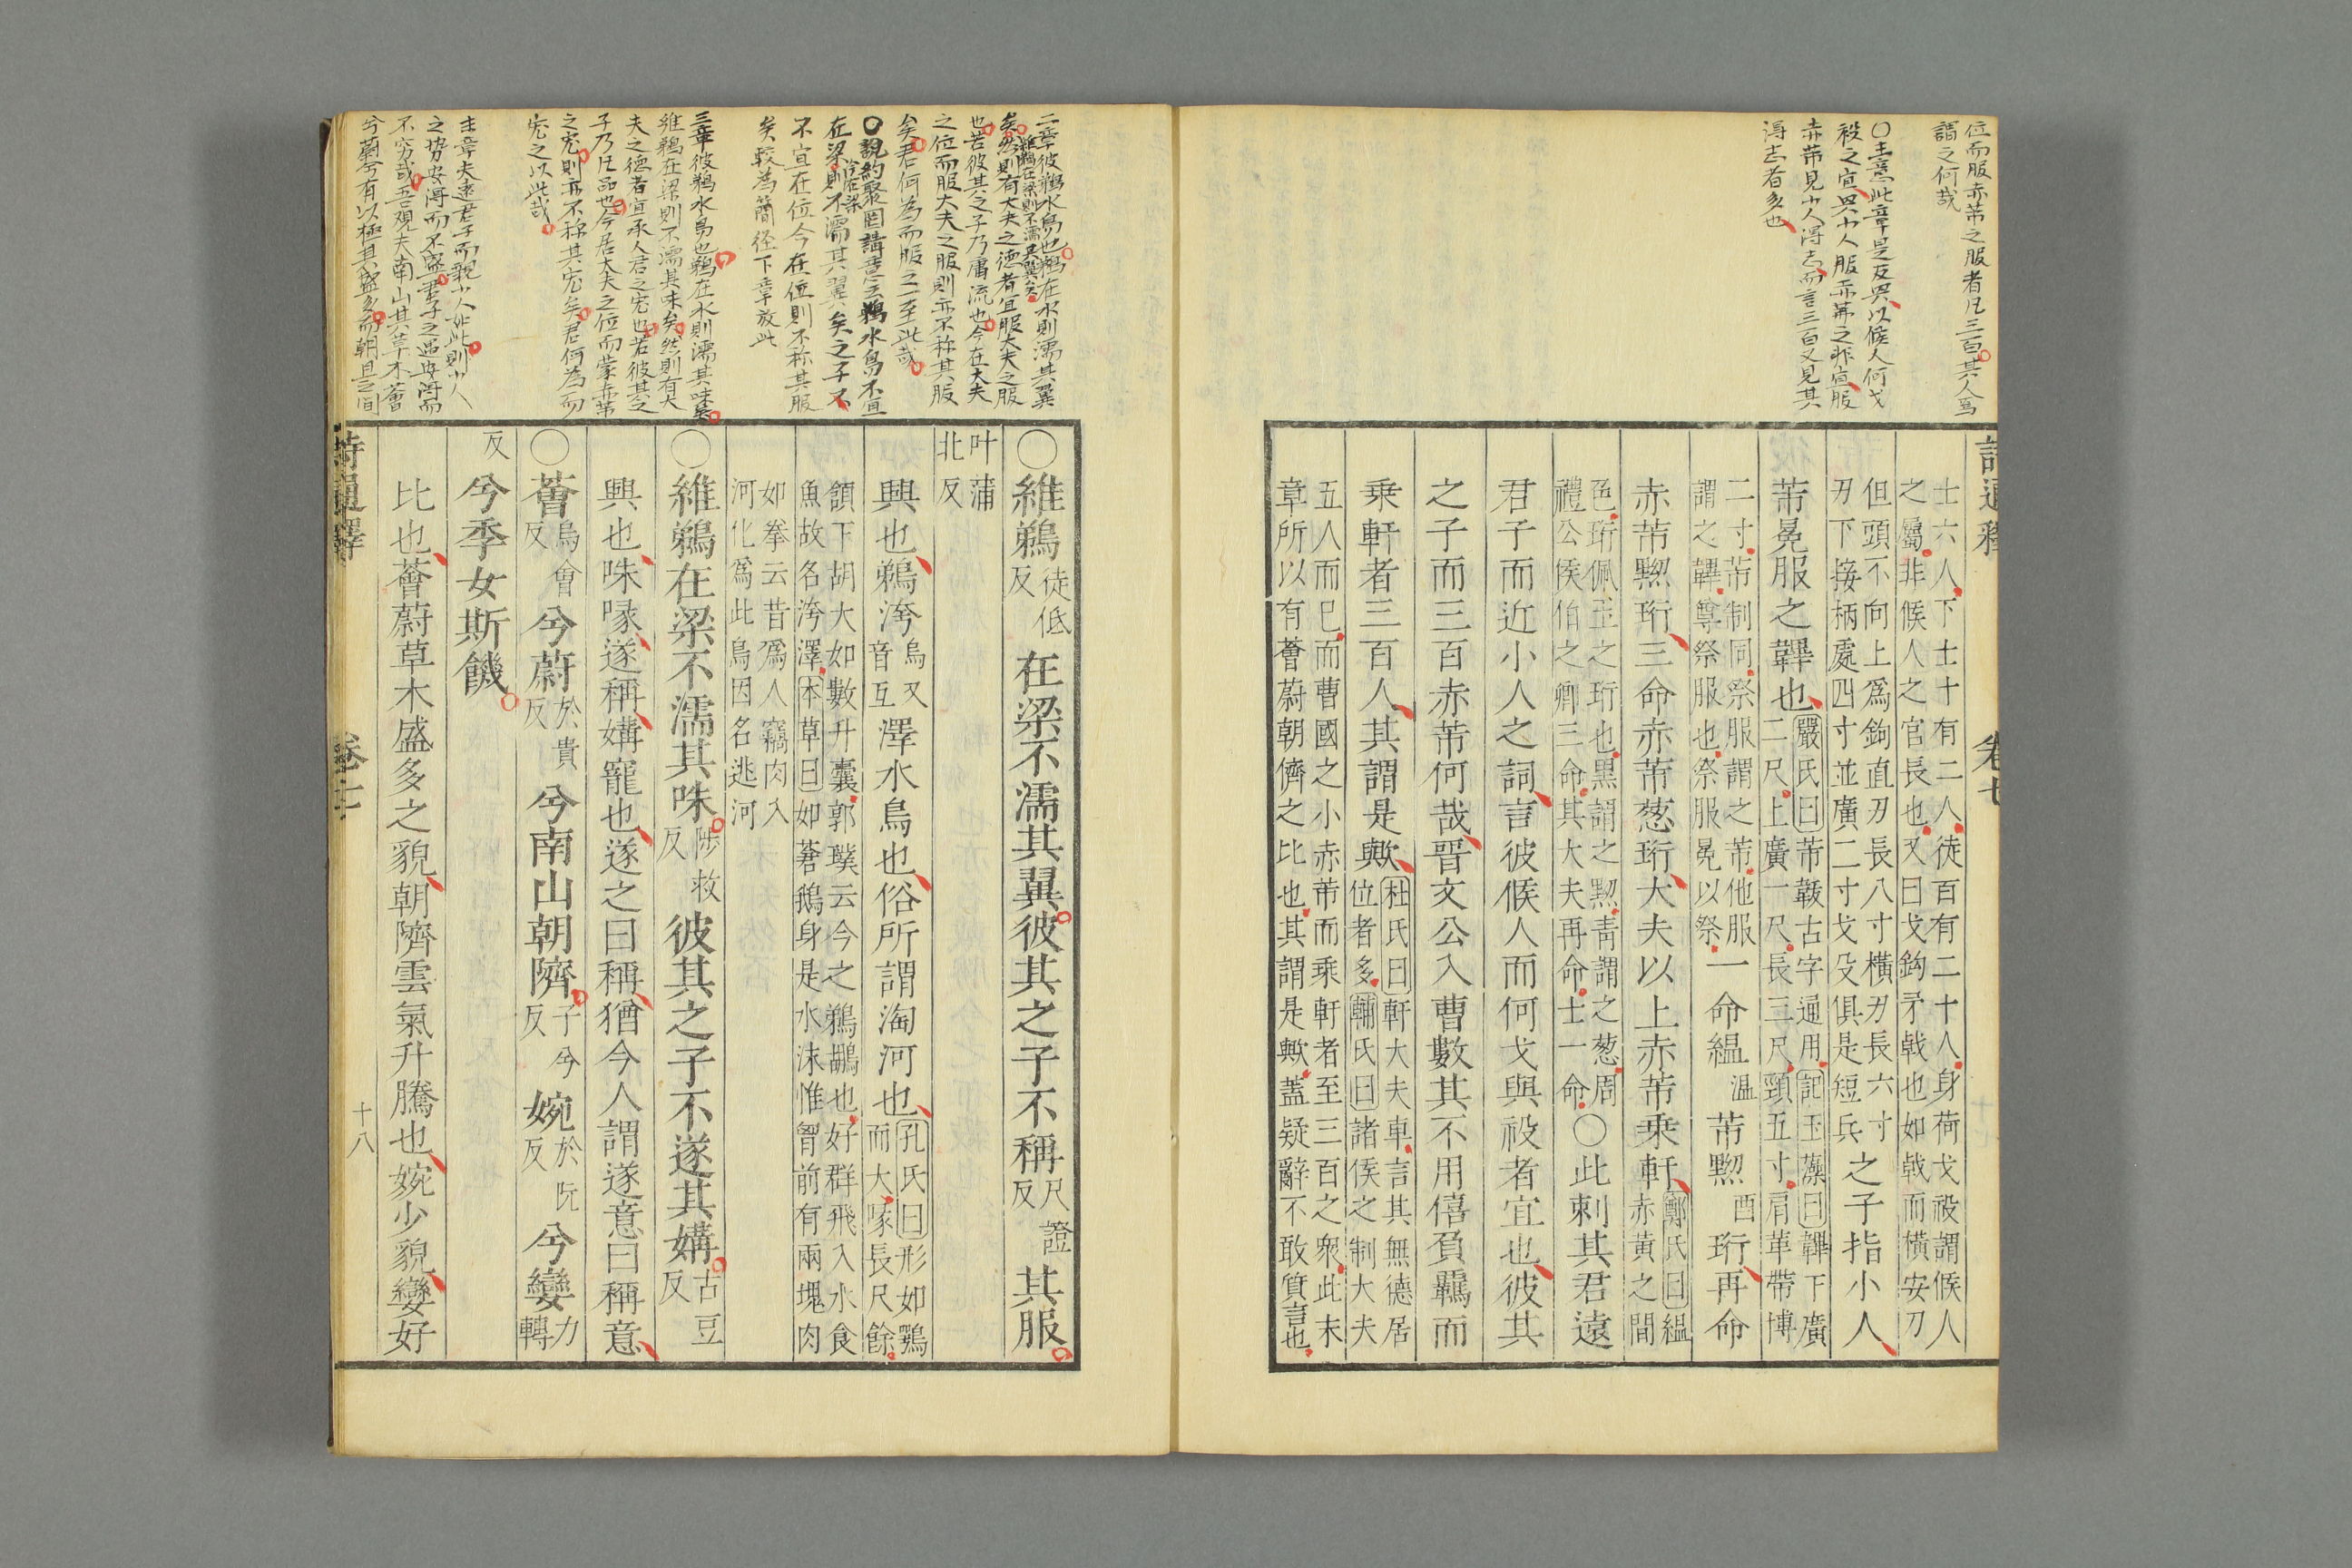 位而服赤芾之服者凡三百其人焉
謂之何哉
○主意此章是反興以候人何戈
祋之宜興小人服赤芾之非宜服
赤芾見小人得志而言三百又見其
得志者多也
士六人下士十有二人徒百有二十人身荷戈祋謂候人
之屬非候人之官長也又曰戈鉤矛戟也如戟而橫安刃
但頭不向上爲鉤直刃長八寸橫刃長六寸
刃下接柄處四寸並廣二寸戈殳俱是短兵
之子指小人
芾冕服之韠也
嚴氏曰芾韍古字通用記玉藻曰韠下廣
二尺上廣一尺長三尺頸五寸肩革帶博
二寸芾制同祭服謂之芾他服
謂之韠尊祭服也祭服冕以祭
一命縕溫芾黝酉珩再命
赤芾黝珩三命赤芾葱珩大夫以上赤芾乘軒
鄭氏曰縕
赤黃之間
色珩佩玉之珩也黑謂之黝青謂之葱周
禮公侯伯之卿三命其大夫再命士一命
○此刺其君遠
君子而近小人之詞言彼候人而何戈與祋者宜也彼其
之子而三百赤芾何哉晉文公入曹數其不用僖負羈而
乘軒者三百人其謂是歟
杜氏曰軒大夫車言其無德居
位者多輔氏曰諸侯之制大夫
五人而已而曹國之小赤芾而乘軒者至三百之衆此末
章所以有薈蔚朝隮之比也其謂是歟蓋疑辭不敢質言也
詩通釋
卷七
二章彼鵜水鳥也鵜在水則濡其翼
維鵜在梁則不濡其翼矣
矣然則有大夫之德者宜服大夫之服
也若彼其之子乃庸流也今在大夫
之位而服大夫之服則亦不称其服
矣君何為而服之至此哉
○說約聚囯講意云鵜水鳥不宜
在梁則不濡其翼矣之子又
不宜在位今在位則不称其服
矣較為簡径下章放此
三章彼鵜水鳥也鵜在水則濡其咮矣
維鵜在梁則不濡其咮矣然則有大
夫之德者宜承人君之宠也若彼其之
子乃凡品也今居大夫之位而蒙赤芾
之宠則亦不称其宠矣君何為而
宠之以此哉
末章夫遠君子而親小人如此則小人
之势安得而不盛君子之遇安得而
不穷哉吾观夫南山其草木薈
兮蔚兮有以極其盛多而朝旦之间
○維鵜徒低反在梁不濡其翼彼其之子不稱尺證反其服
叶蒲北反
興也鵜洿烏又音互澤水鳥也俗所謂淘河也
孔氏曰形如鶚
而大喙長尺餘
頷下胡大如數升囊郭璞云今之鵜鶘也好群飛入水食
魚故名洿澤本草曰如蒼鵝身是水沫惟胷前有兩塊肉
如拳云昔爲人竊肉入
河化爲此鳥因名逃河
○維鵜在梁不濡其咮陟救反彼其之子不遂其媾古豆反
興也咮喙遂稱媾寵也遂之曰稱猶今人謂遂意曰稱意
○薈烏會反兮蔚於貴反兮南山朝隮子兮反婉於阮反兮孌力轉
反兮季女斯饑
比也薈蔚草木盛多之貌朝隮雲氣升騰也婉少貌孌好
詩通釋
卷七
十八